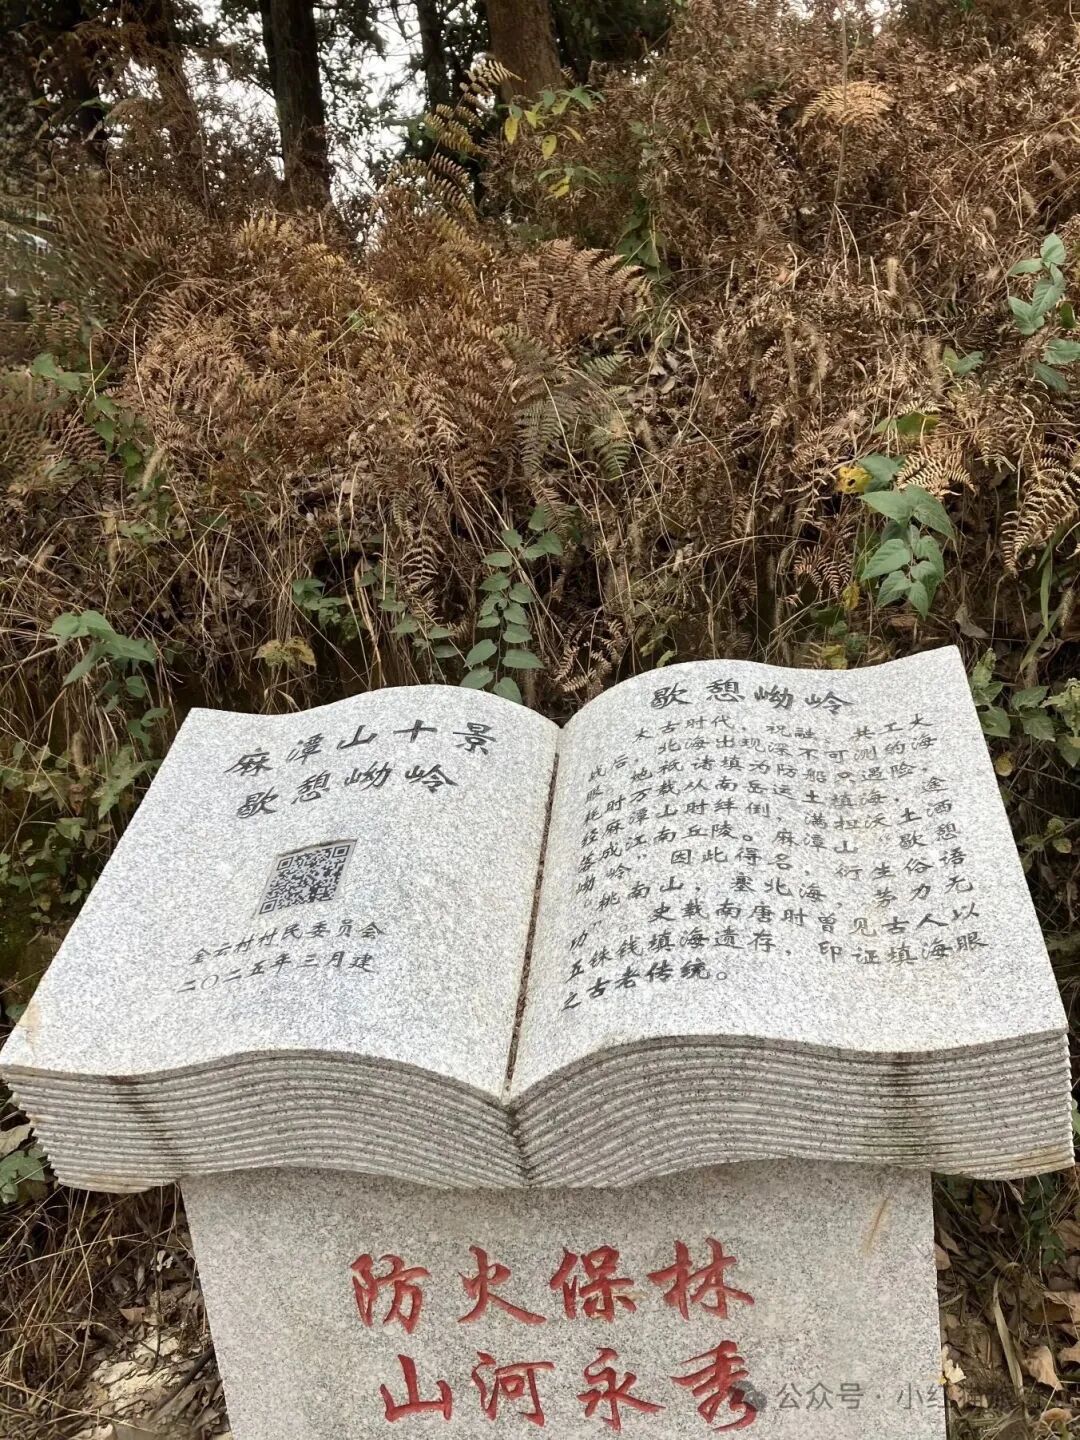 麻潭山十景
歇憩岰岭
全云村村民委员会
二〇二五年三月建
歇憩岰岭
太古时代，祝融、共工大
战后，北海出现深不可测的海
眼。地祇诸填为防船只遇险，
耗时万载从南岳运土填海，途
经麻潭山时绊倒，满担沃土洒
落成江南丘陵。麻潭山“歇憩
岰岭”因此得名，衍生俗语
“挑南山，塞北海，劳力无
功”。史载南唐时曾见古人以
五铢钱填海遗存，印证填海眼
之古老传统。
防火保林
山河永秀
公众号·小红